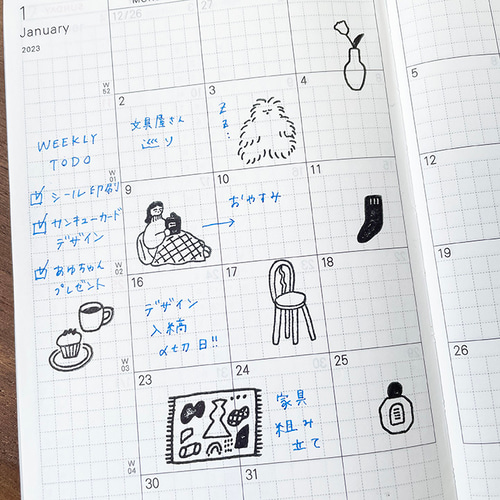 1
January
2023
12/26
27
28
W
52
2
3
4
5
文具屋さん
巡り
Z
Z
Z
WEEKLY
TODO
W
01
シール印刷
サンキューカード
デザイン
あゆちゃん
プレゼント
9
10
11
12
おやすみ
W
02
16
17
18
19
デザイン
入稿
〆切日!!
W
03
23
24
25
26
家具
組み
立て
W
04
30
31